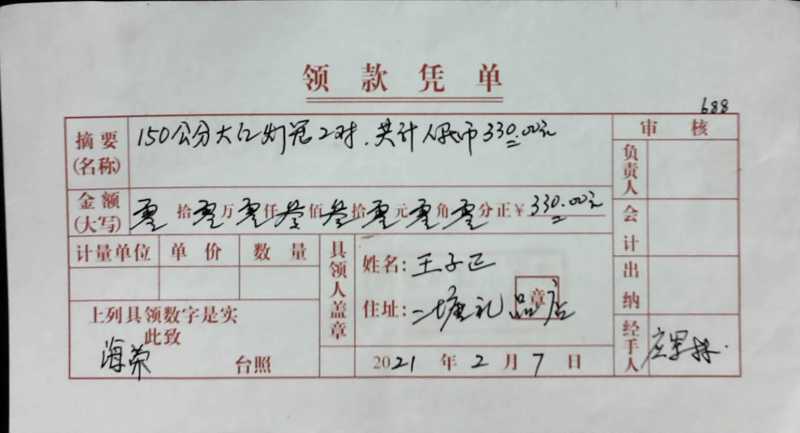 领款凭单
688
摘要(名称) 150公分大红灯笼2对,共计人民币330.00元
审核
金额(大写) 零拾零万零仟叁佰叁拾零元零角零分正¥330.00元
负责人
会计
计量单位 单价 数量
具领人盖章
姓名:王子正
住址:二塘礼品店
章
出纳
上列具领数字是实
此致
海荣 台照
2021年2月7日
经手人